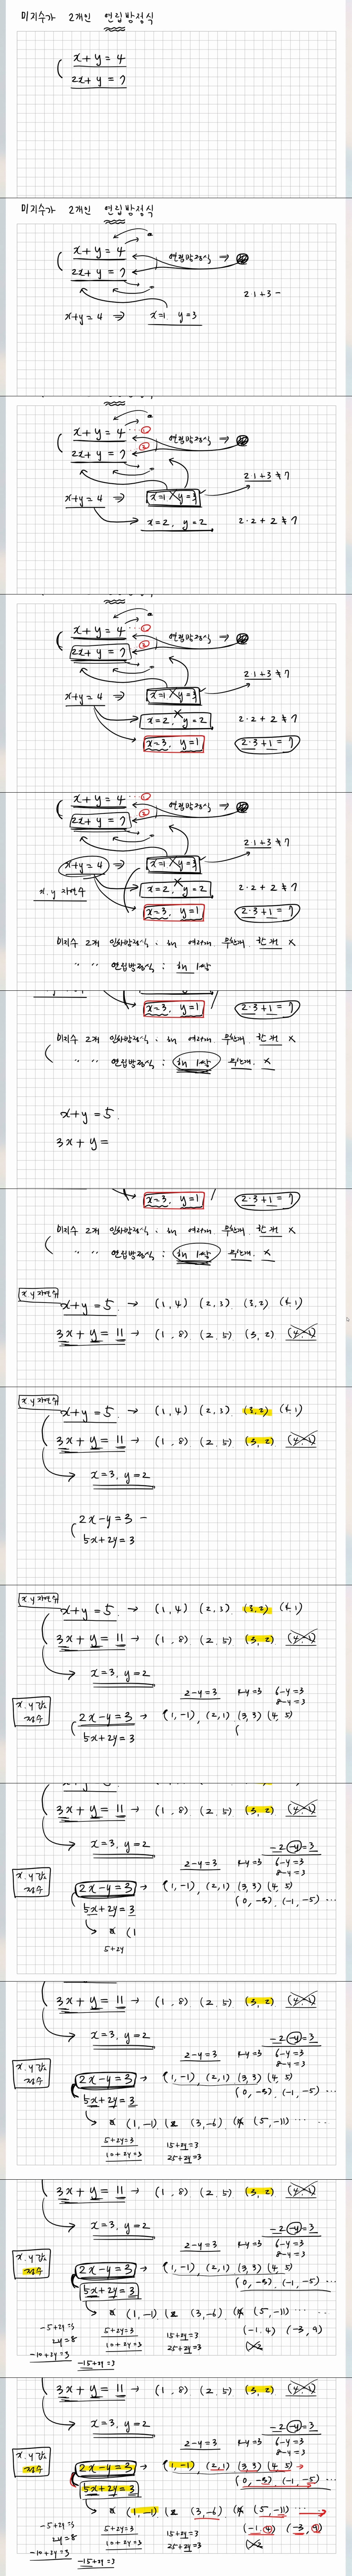 미지수가 2개인 연립방정식
x+y=4
2x+y=7
미지수가 2개인 연립방정식
x+y=4
연립방정식 → 해
2x+y=7
2·1+3-
x+y=4 ⇒ x=1 y=3
x+y=4 ··· ①
연립방정식 → 해
2x+y=7 ②
2·1+3≠7
x+y=4 ⇒ x=1 y=3
x=2, y=2 2·2+2≠7
x+y=4 ··· ①
연립방정식 → 해
2x+y=7 ②
2·1+3≠7
x+y=4 ⇒ x=1 y=3
x=2, y=2 2·2+2≠7
x=3, y=1 2·3+1=7
x+y=4 ··· ①
연립방정식 → 해
2x+y=7 ②
2·1+3≠7
x+y=4 ⇒ x=1 y=3
x.y 자연수 x=2, y=2 2·2+2≠7
x=3, y=1 2·3+1=7
미지수 2개 일차방정식 : 해 여러개 무한개 한개 x
〃 〃 연립방정식 : 해 1쌍
x=3, y=1 2·3+1=7
미지수 2개 일차방정식 : 해 여러개 무한개 한개 x
〃 〃 연립방정식 : 해 1쌍 무한개. x
x+y=5
3x+y=
x=3, y=1 2·3+1=7
미지수 2개 일차방정식 : 해 여러개 무한개 한개 x
〃 〃 연립방정식 : 해 1쌍 무한개. x
x y 자연수
x+y=5 → (1,4) (2,3) (3,2) (4,1)
3x+y=11 → (1,8) (2,5) (3,2) (4,-1)
x y 자연수
x+y=5 → (1,4) (2,3) (3,2) (4,1)
3x+y=11 → (1,8) (2,5) (3,2) (4,-1)
x=3, y=2
2x-y=3 -
5x+2y=3
x y 자연수
x+y=5 → (1,4) (2,3) (3,2) (4,1)
3x+y=11 → (1,8) (2,5) (3,2) (4,-1)
x=3, y=2
2-y=3 4-y=3 6-y=3
8-y=3
x.y 값 정수
2x-y=3 → (1,-1), (2,1) (3,3) (4,5)
5x+2y=3 (
3x+y=11 → (1,8) (2,5) (3,2) (4,-1)
x=3, y=2 -2-y=3
2-y=3 4-y=3 6-y=3
8-y=3
x.y 값 정수
2x-y=3 → (1,-1), (2,1) (3,3) (4,5)
(0,-3), (-1,-5) ···
5x+2y=3
→ (1
5+2y
3x+y=11 → (1,8) (2,5) (3,2) (4,-1)
x=3, y=2 -2-y=3
2-y=3 4-y=3 6-y=3
8-y=3
x.y 값 정수
2x-y=3 → (1,-1), (2,1) (3,3) (4,5)
(0,-3), (-1,-5) ···
5x+2y=3
→ (1,-1) (3,-6) (5,-11) ···
5+2y=3 15+2y=3
10+2y=3 25+2y=3
3x+y=11 → (1,8) (2,5) (3,2) (4,-1)
x=3, y=2 -2-y=3
2-y=3 4-y=3 6-y=3
8-y=3
x.y 값 정수
2x-y=3 → (1,-1), (2,1) (3,3) (4,5)
(0,-3), (-1,-5) ···
5x+2y=3
→ (1,-1) (3,-6) (5,-11) ···
-5+2y=3 5+2y=3 15+2y=3 (-1,4) (-3,9)
2y=8 10+2y=3 25+2y=3
-10+2y=3 -15+2y=3
3x+y=11 → (1,8) (2,5) (3,2) (4,-1)
x=3, y=2 -2-y=3
2-y=3 4-y=3 6-y=3
8-y=3
x.y 값 정수
2x-y=3 → (1,-1), (2,1) (3,3) (4,5) →
(0,-3), (-1,-5) ···
5x+2y=3
→ (1,-1) (3,-6) (5,-11) ···
-5+2y=3 5+2y=3 15+2y=3 (-1,4) (-3,9)
2y=8 10+2y=3 25+2y=3
-10+2y=3 -15+2y=3